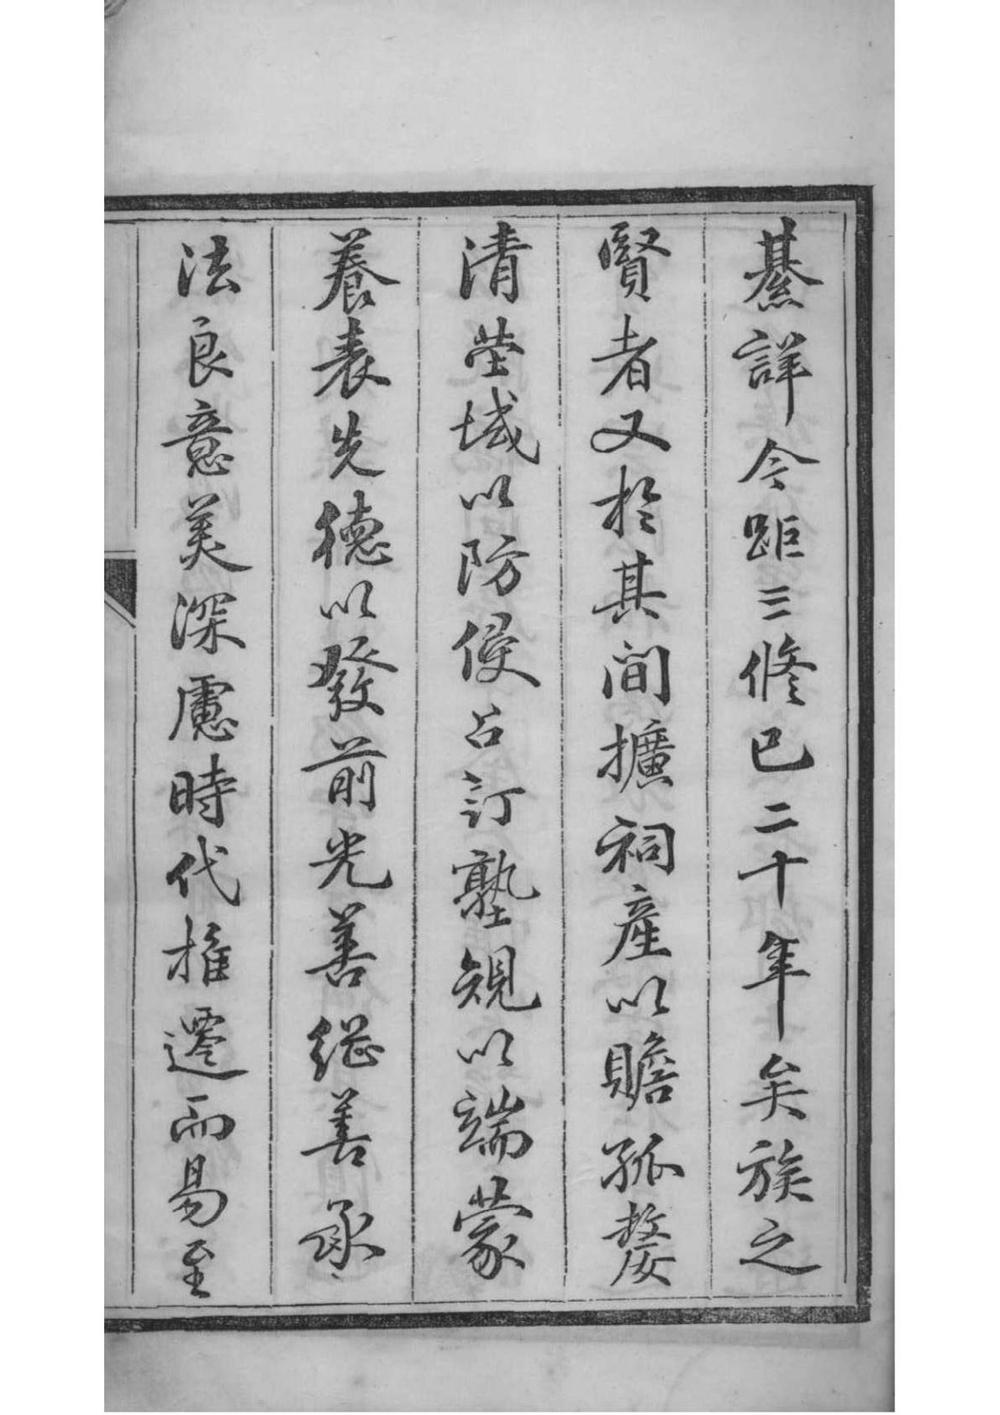 綦詳今距三修已二十年矣族之
賢者又於其間擴祠產以贍孤嫠
清塋域以防侵占訂塾規以端蒙
養表先德以發前光善繼善承
法良意美深慮時代推遷而易至